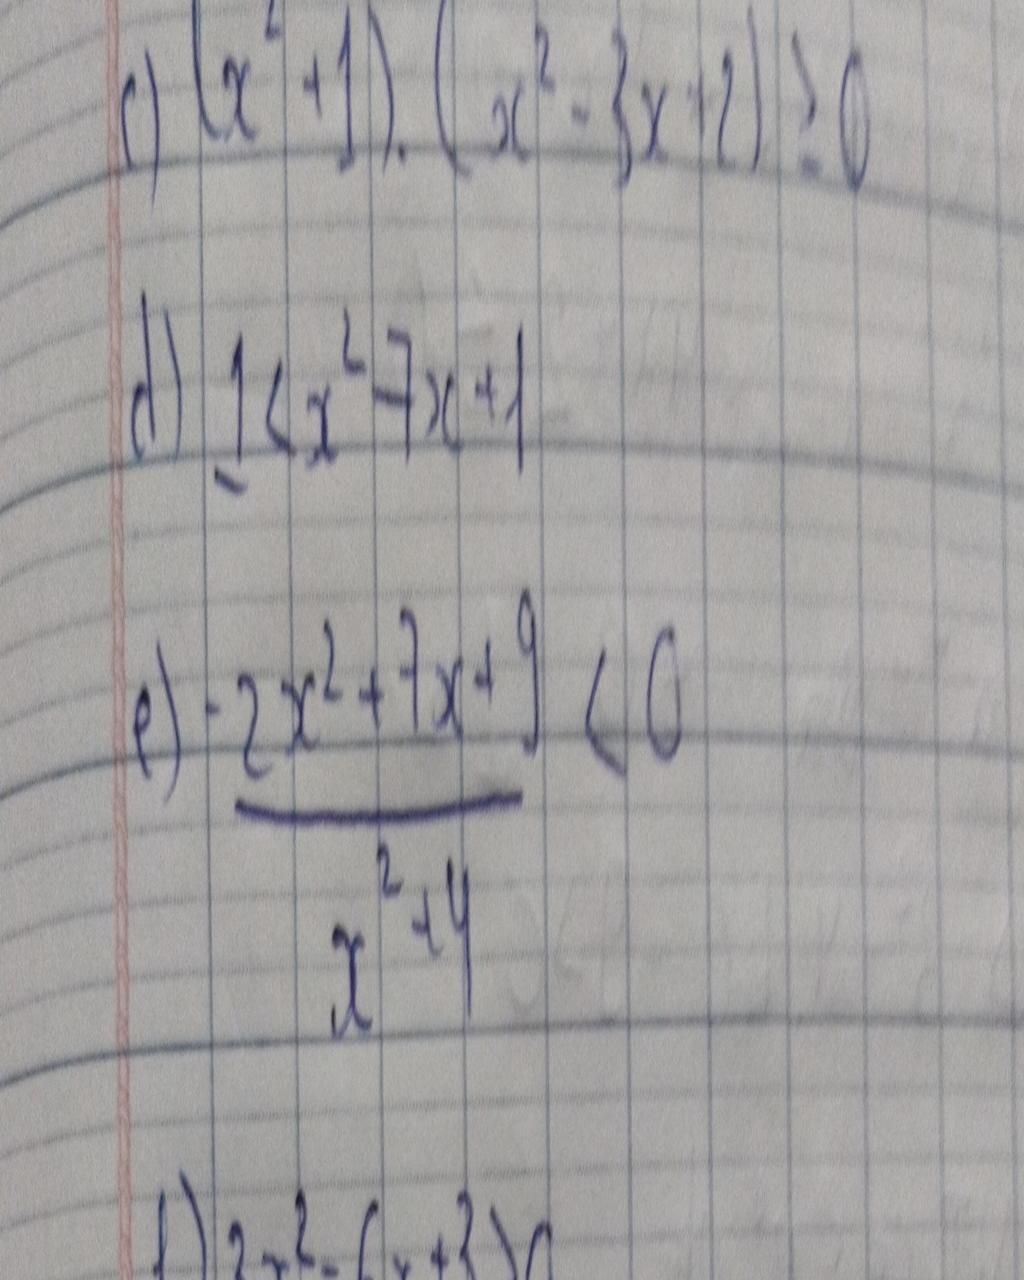 c) (x² + 1).(x² - 3x + 2) ≥ 0
d) 1 < x² - 7x + 1
e) -2x² + 7x + 9 < 0
x² + 4
f) 3x² - 6x + 3 > 0